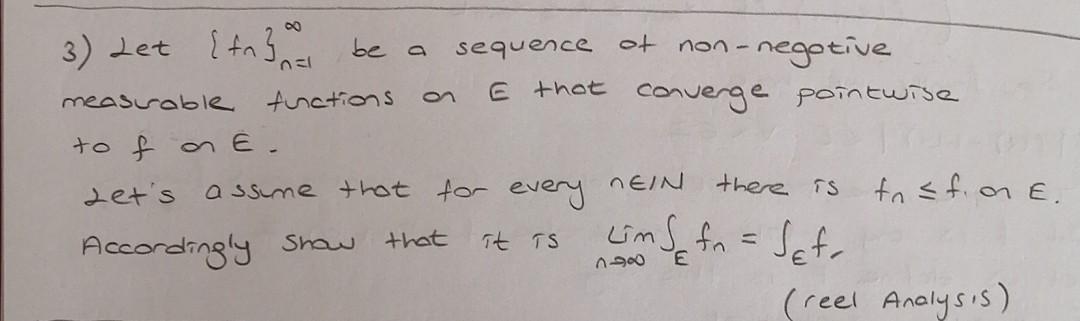 3) Let {fn}∞n=1 be a sequence of non-negative
measurable functions on E that converge pointwise
to f on E.
Let's assume that for every n∈IN there is fn ≤ f. on E.
Accordingly show that it is Lim n→∞ ∫E fn = ∫E f.
(reel Analysis)